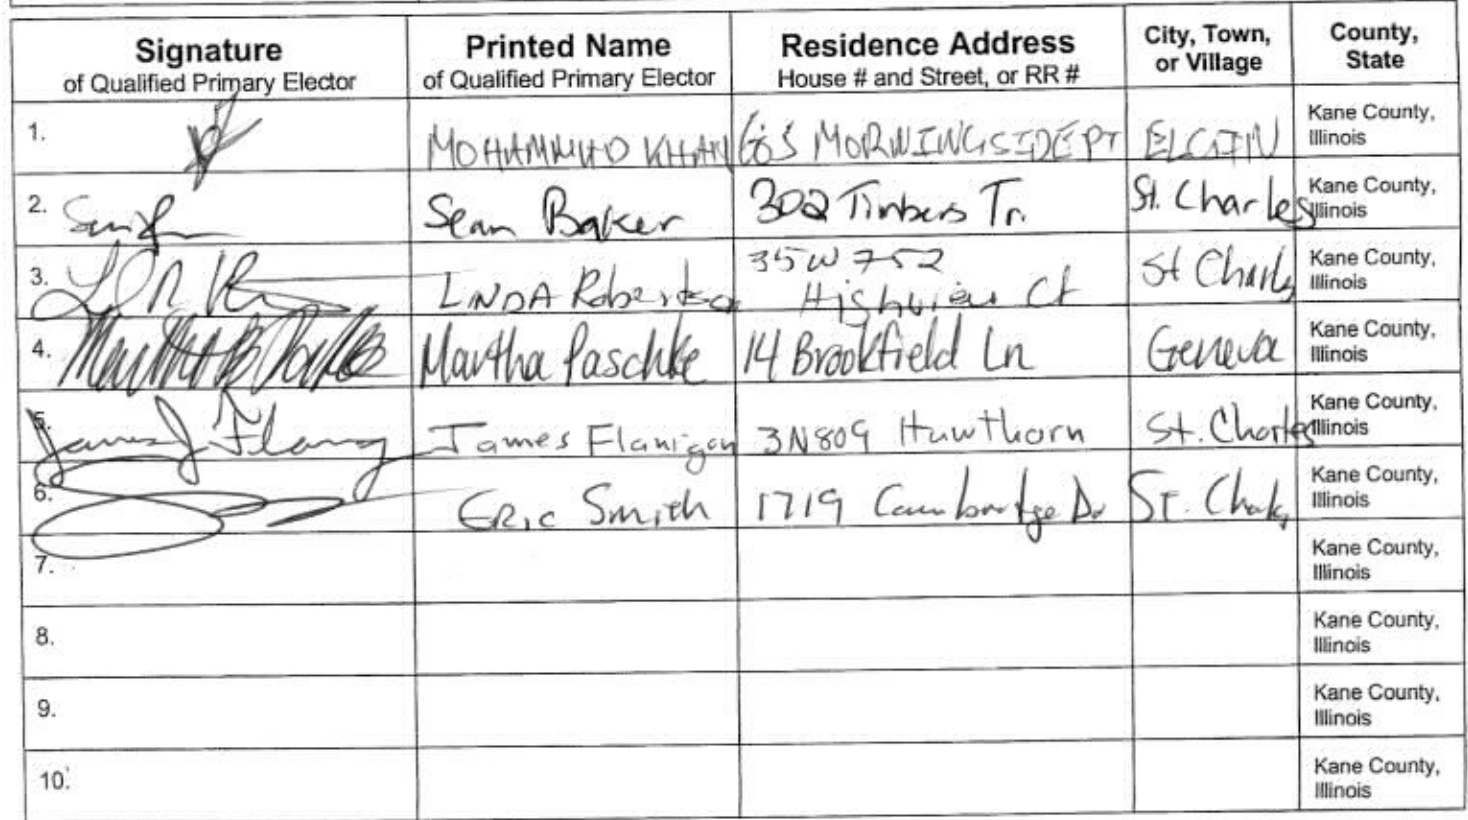 Signature Printed Name Residence Address City, Town, County,
of Qualified Primary Elector of Qualified Primary Elector House # and Street, or RR # or Village State
1. MOHAMMHD KHAN MORNINGSIDE PT ELGIN Kane County,
Illinois
2. Sean Baker 302 Timbers Tr. St. Charles Kane County,
Illinois
3. LINDA Robertson 35W752 St Charles Kane County,
Highview Ct Illinois
4. Martha Paschke 14 Brookfield Ln Geneva Kane County,
Illinois
5. James J Flanigan James Flanigan 3N809 Hawthorn St. Charles Kane County,
Illinois
6. ERic Smith 1719 Cambridge Dr ST. Charles Kane County,
Illinois
7. Kane County,
Illinois
8. Kane County,
Illinois
9. Kane County,
Illinois
10. Kane County,
Illinois